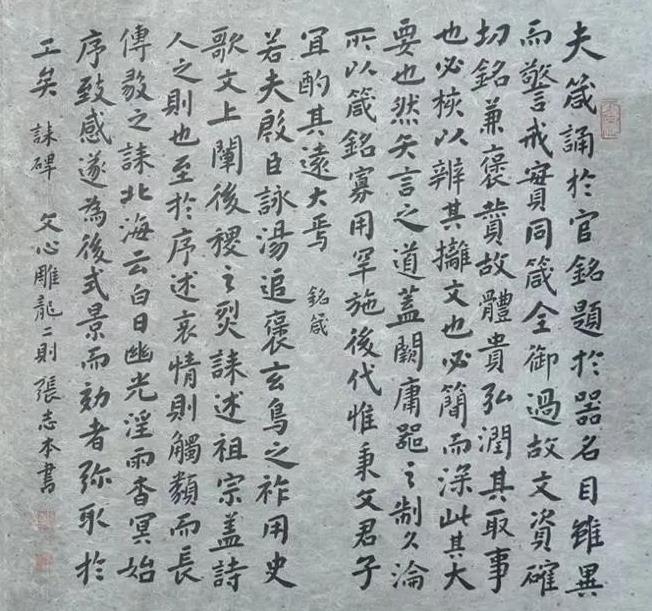 夫箴誦於官銘題於器名目雖異
而警戒實同箴全御過故文資確
切銘兼褒讚故體貴弘潤其取事
也必核以辨其攡文也必簡而深此其大
要也然矢言之道蓋闕庸器之制久淪
所以箴銘寡用罕施後代惟秉文君子
宜酌其遠大焉 銘箴
若夫殷臣詠湯追褒玄鳥之祚用史
歌文上闡後稷之烈誄述祖宗盖詩
人之則也至於序述哀情則觸類而長
傅毅之誄北海云白日幽光淫雨杳冥始
序致感遂為後式景而効者弥取於
工矣 誄碑 文心雕龍二則 張志本書